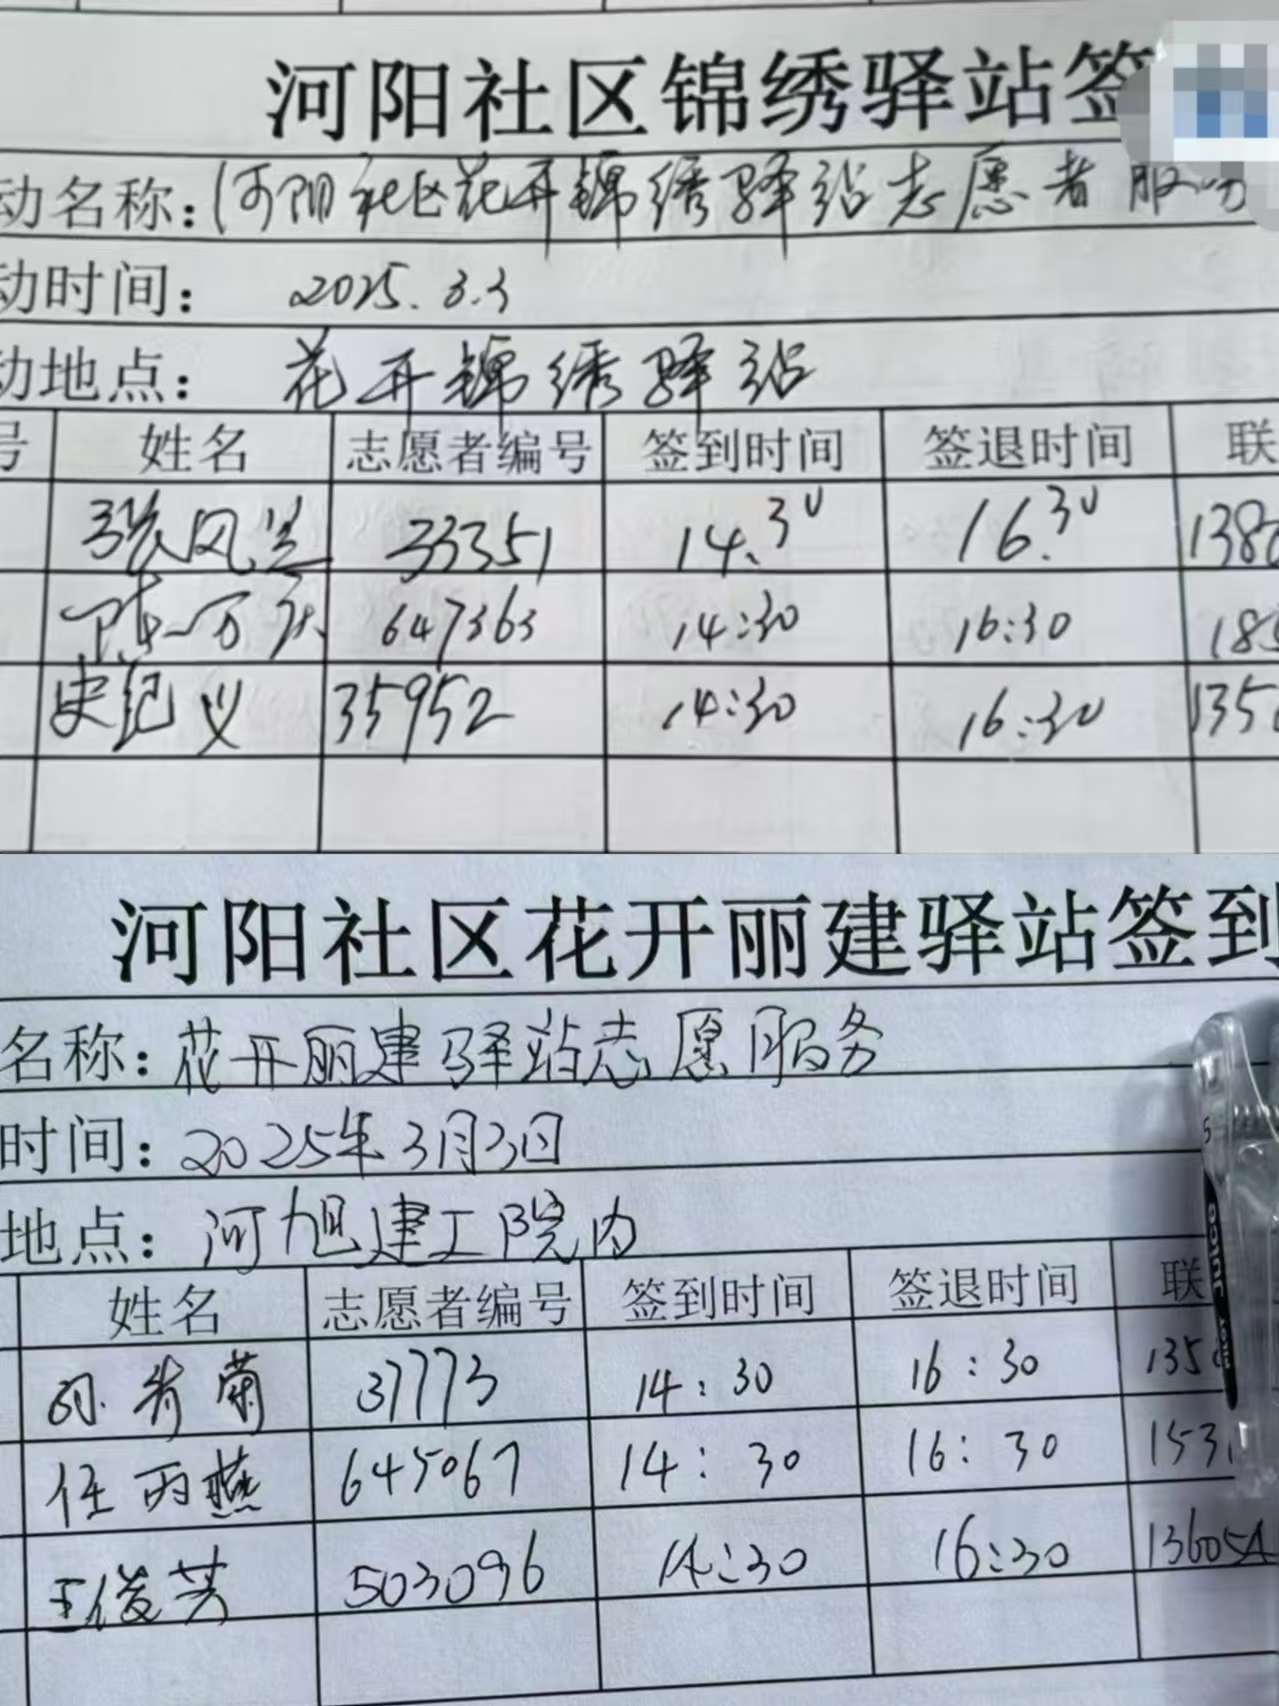 河阳社区锦绣驿站签
动名称：河阳社区花开锦绣驿站志愿者服
动时间： 2025.3.3
动地点： 花开锦绣驿站
号 姓名 志愿者编号 签到时间 签退时间 联
张风兰 33351 14.30 16.30 138
陈一万 647363 14:30 16:30 185
史纪义 35952 14:30 16:30 135
河阳社区花开丽建驿站签到
名称：花开丽建驿站志愿服务
时间：2025年3月3日
地点：河旭建工院内
姓名 志愿者编号 签到时间 签退时间 联
菊 37773 14:30 16:30 135
任丙燕 645067 14:30 16:30 1531
王俊芳 503096 14:30 16:30 136054